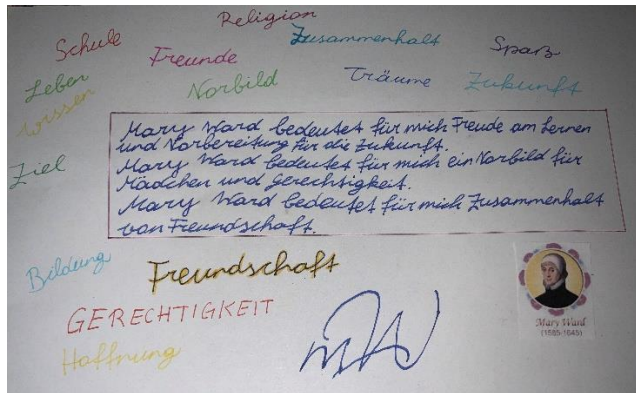 Religion
Schule Freunde Zusammenhalt Spaß
Leben Vorbild Träume Zukunft
Wissen
Ziel
Mary Ward bedeutet für mich Freude am Lernen
und Vorbereitung für die Zukunft.
Mary Ward bedeutet für mich ein Vorbild für
Mädchen und Gerechtigkeit.
Mary Ward bedeutet für mich Zusammenhalt
von Freundschaft.
Bildung Freundschaft
GERECHTIGKEIT
Hoffnung
MW
Mary Ward
(1585-1645)